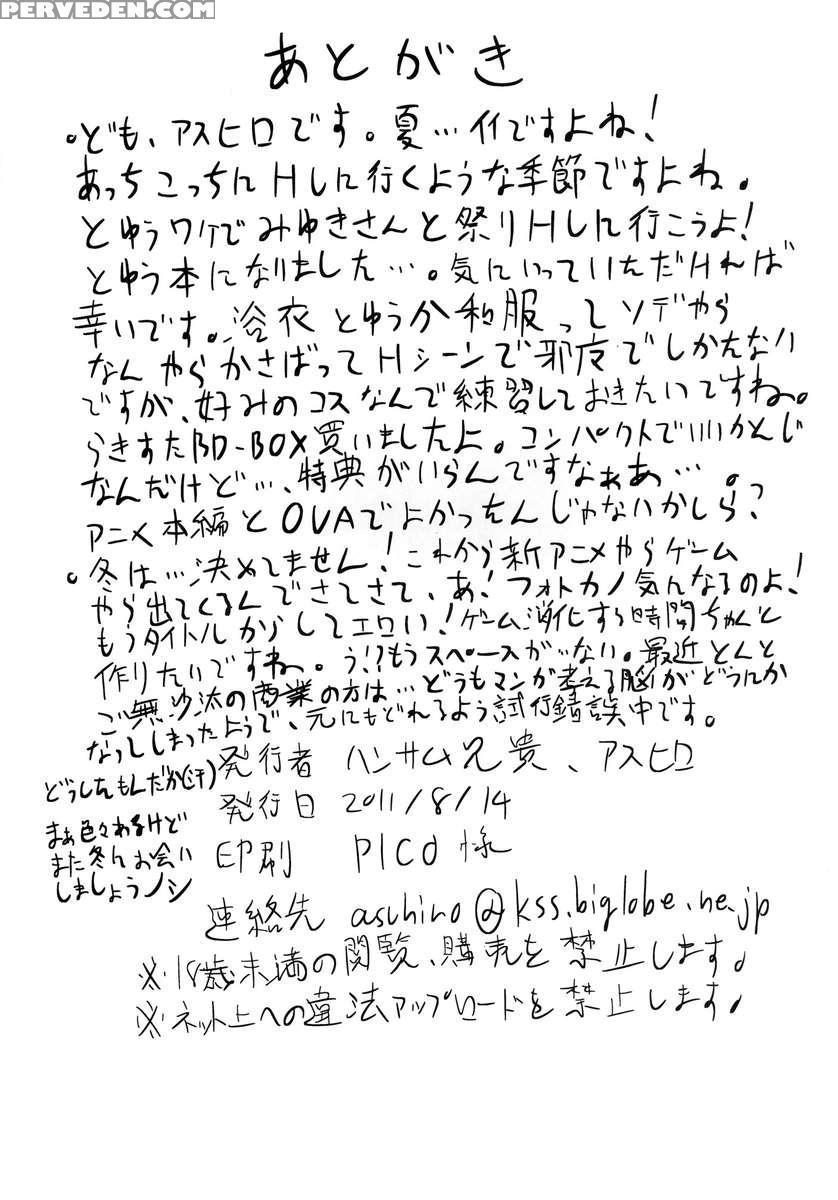 PERVEDEN.COM
あとがき
。ども、アスヒロです。夏…イイですよね!
あっちこっちにHしに行くような季節ですよね。
とゆうワケでみゆきさんと祭りHしに行こうよ!
とゆう本になりました…。気にいっていただければ
幸いです。浴衣とゆうか和服ってソデやら
なんやらかさばってHシーンで邪魔でしかたない
ですが、好みのコスなんで練習しておきたいですね。
らきすたBD-BOX買いましたよ。コンパクトでいいかんじ
なんだけど…、特典がいらんですなぁぁ…。
アニメ本編とOVAでよかったんじゃないかしら?
。冬は…決めてません!これから新アニメやらゲーム
やら出てくるんでさてさて、あ!フォトカノ気んなるのよ!
もうタイトルからしてエロい!ゲーム消化する時間ちゃんと
作りたいですね。う!?もうスペースがいない。最近とんと
ご無沙汰の商業の方は…どうもマンガ考える脳がどうにか
なってしまったようで、元にもどれるよう試行錯誤中です。
どうしたもんだか(汗)
まぁ色々わるけど
また冬んお会い
しましょうノシ
発行者 ハンサム兄貴、アスヒロ
発行日 2011/8/14
印刷 PICO様
連絡先 asuhiro@kss.biglobe.ne.jp
※18歳未満の閲覧、購売を禁止します。
※ネット上への違法アップロードを禁止します。